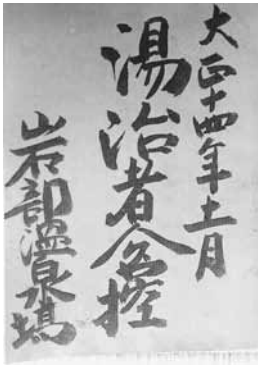 大正十四年十一月
湯治者人名控
岩部温泉塲